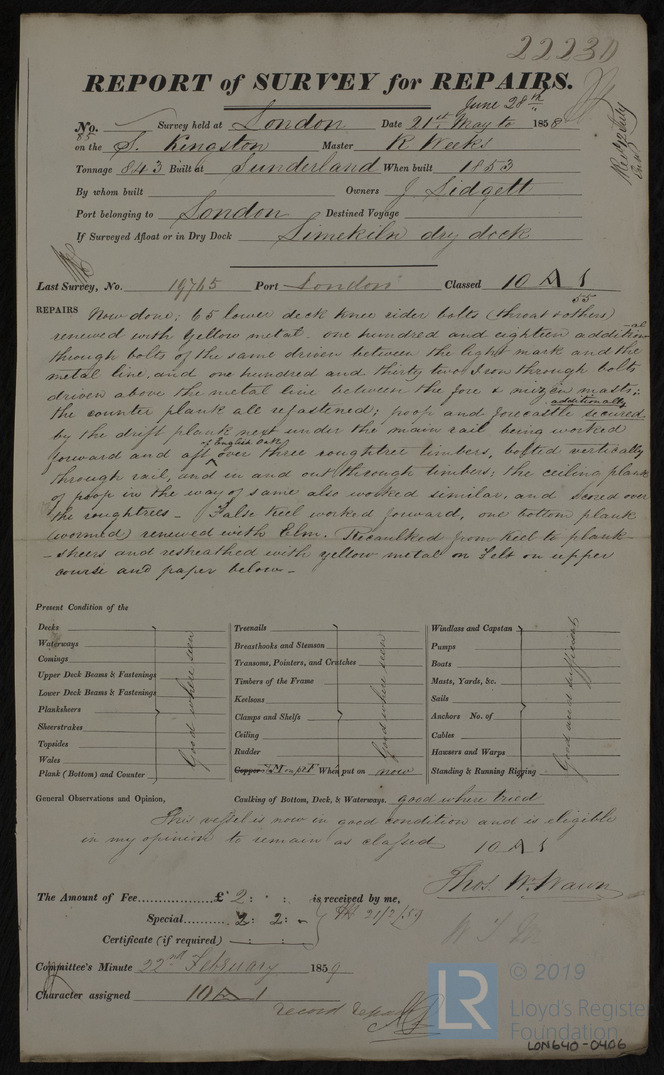 22230
REPORT of SURVEY for REPAIRS.
June 28th
No. Survey held at London Date 21st May to 1858
85
on the S. Kingston Master R Weeks
Tonnage 843 Built at Sunderland When built 1853
By whom built Owners J Lidgett
Port belonging to London Destined Voyage
If Surveyed Afloat or in Dry Dock Limekiln dry dock
Last Survey, No. 19765 Port London Classed 10 A 1
55
REPAIRS Now done; 65 lower deck knee rider bolts (throat & others)
renewed with yellow metal. one hundred and eighteen addition-al
through bolts of the same driven between the light mark and the
metal line. and one hundred and thirty two Iron through bolts
driven above the metal line between the fore & mizen masts;
the counter plank all refastened; poop and forecastle additionally secured
by the drift plank next under the main rail being worked
forward and aft of English Oak over three roughtree timbers, bolted vertically
through rail, and in and out through timbers; the ceiling plank
of poop in the way of same also worked similar, and scored over
the roughtrees - False keel worked forward, one bottom plank
(wormed) renewed with Elm. Recaulked from keel to plank-
-sheers and resheathed with yellow metal on Felt on upper
course and paper below -
Present Condition of the
Decks
Waterways
Comings
Upper Deck Beams & Fastenings
Lower Deck Beams & Fastenings
Planksheers
Sheerstrakes
Topsides
Wales
Plank (Bottom) and Counter
Good where seen
Treenails
Breasthooks and Stemson
Transoms, Pointers, and Crutches
Timbers of the Frame
Keelsons
Clamps and Shelfs
Ceiling
Rudder
Copper Y.M on pt F When put on now
Good where seen
Windlass and Capstan
Pumps
Boats
Masts, Yards, &c.
Sails
Anchors No. of
Cables
Hawsers and Warps
Standing & Running Rigging
Good and sufficient
General Observations and Opinion, Caulking of Bottom, Deck, & Waterways. good where tried
This vessel is now in good condition and is eligible
in my opinion to remain as classed 10 A 1
Thos. W. Wawn
The Amount of Fee £ 2: is received by me,
Special 2: 2: - 21/2/59
Certificate (if required)
Committee's Minute 22nd February 1859
Character assigned 10 A 1
record repairs
LR © 2019
Lloyd's Register
Foundation
LON640-0406